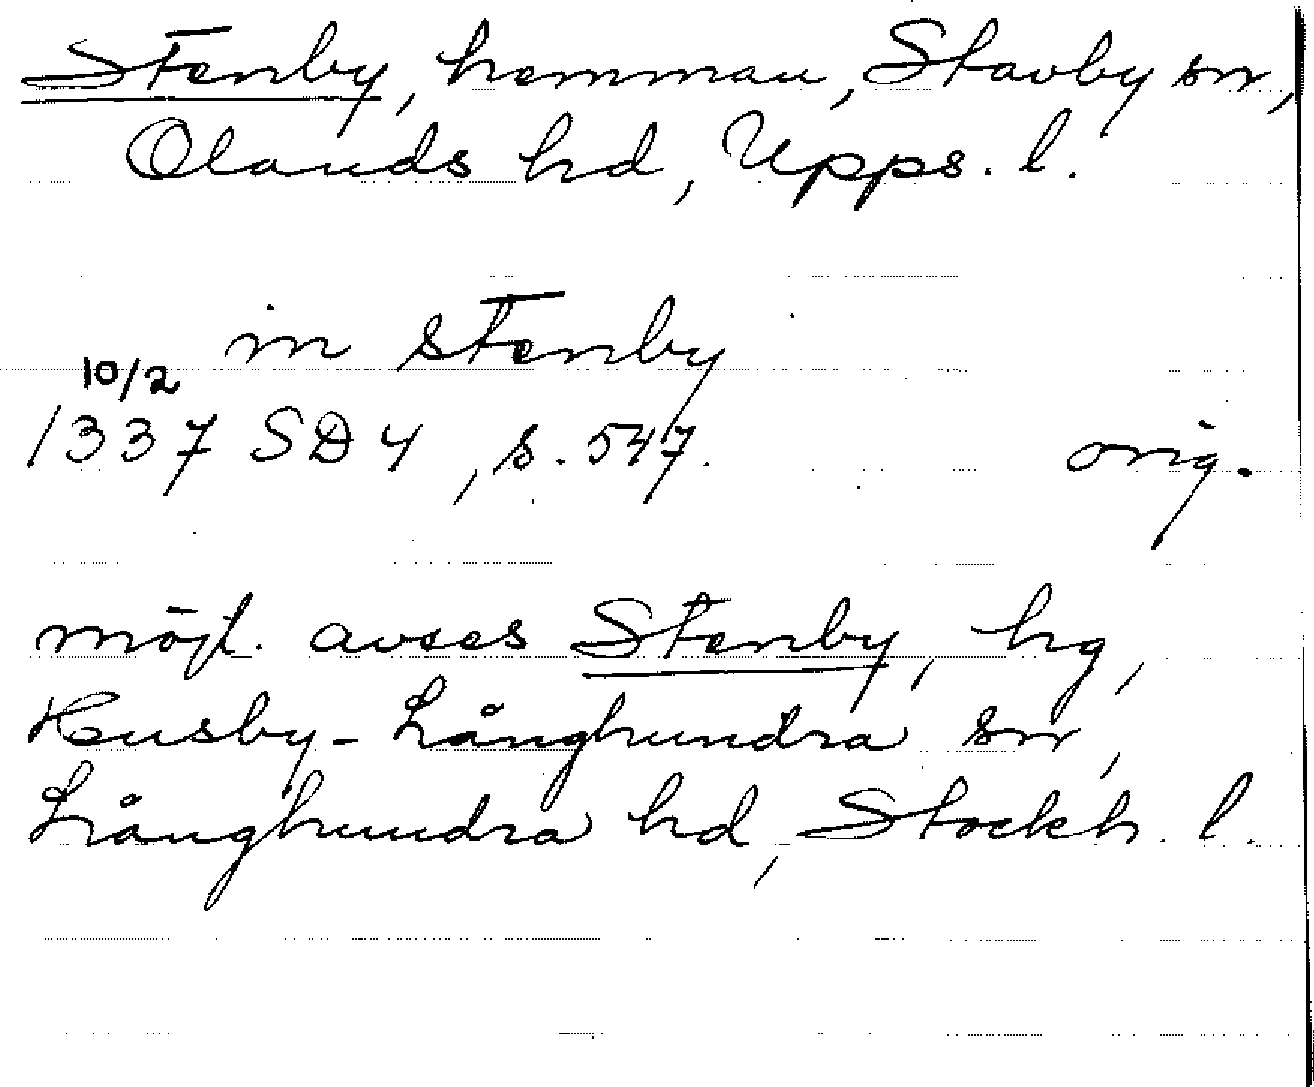 Stenby, hemman, Stavby sn,
Olands hd, Upps. l.
in stenby
10/2
1337 SD 4, s. 547. orig.
möjl. avses Stenby, hg,
Husby-Långhundra sn,
Långhundra hd, Stockh. l.